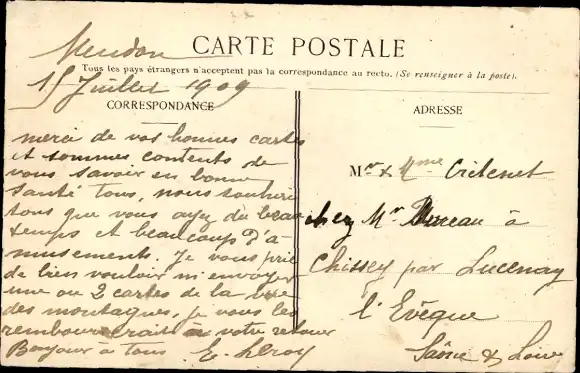 CARTE POSTALE
Tous les pays étrangers n'acceptent pas la correspondance au recto. (Se renseigner à la poste).
Meudon
15 Juillet 1909
CORRESPONDANCE
merci de vos bonnes cartes
et sommes contents de
vous savoir en bonne
santé tous, nous
tous que vous ayez du beau
temps et beaucoup d'a-
musements. Je vous prie
de bien vouloir m'envoyer
une ou 2 cartes de la vue
des montagnes, je vous les
rembourserait à votre retour
Bonjour à tous E. Leroy
ADRESSE
Mr & Mme
chez Mr à
Chissey par Lucenay
l'Evêque
Saône & Loire